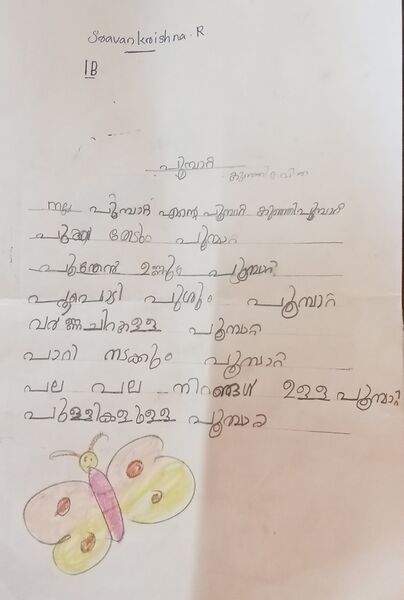 Sravankrishna.R
1B
പൂമ്പാറ്റ
കുഞ്ഞികവിത
നല്ല പൂമ്പാറ്റ എന്റെ പൂമ്പാറ്റ കുഞ്ഞിപൂമ്പാറ്റ
പൂക്കൾ തേടും പൂമ്പാറ്റ
പൂന്തേൻ ഉണ്ണും പൂമ്പാറ്റ
പൂമ്പൊടി പൂശും പൂമ്പാറ്റ
വർണ്ണചിറകുള്ള പൂമ്പാറ്റ
പാറി നടക്കും പൂമ്പാറ്റ
പല പല നിറങ്ങൾ ഉള്ള പൂമ്പാറ്റ
പുള്ളികളുള്ള പൂമ്പാറ്റ